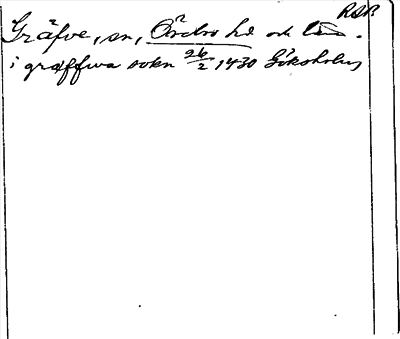 RSR
Gräfve, sn, Örebro hd och län.
i græffwa sokn 26/2 1430 Göksholm